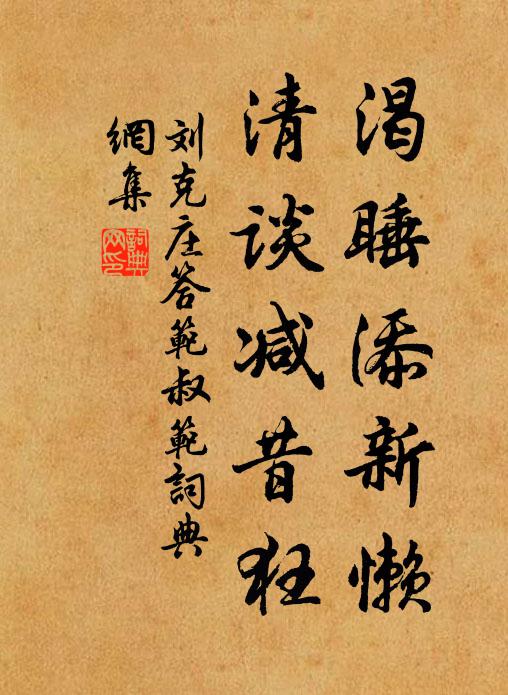 渴睡添新懒
清谈减昔狂
刘克庄答範叔範詞典
網集
詞典网印